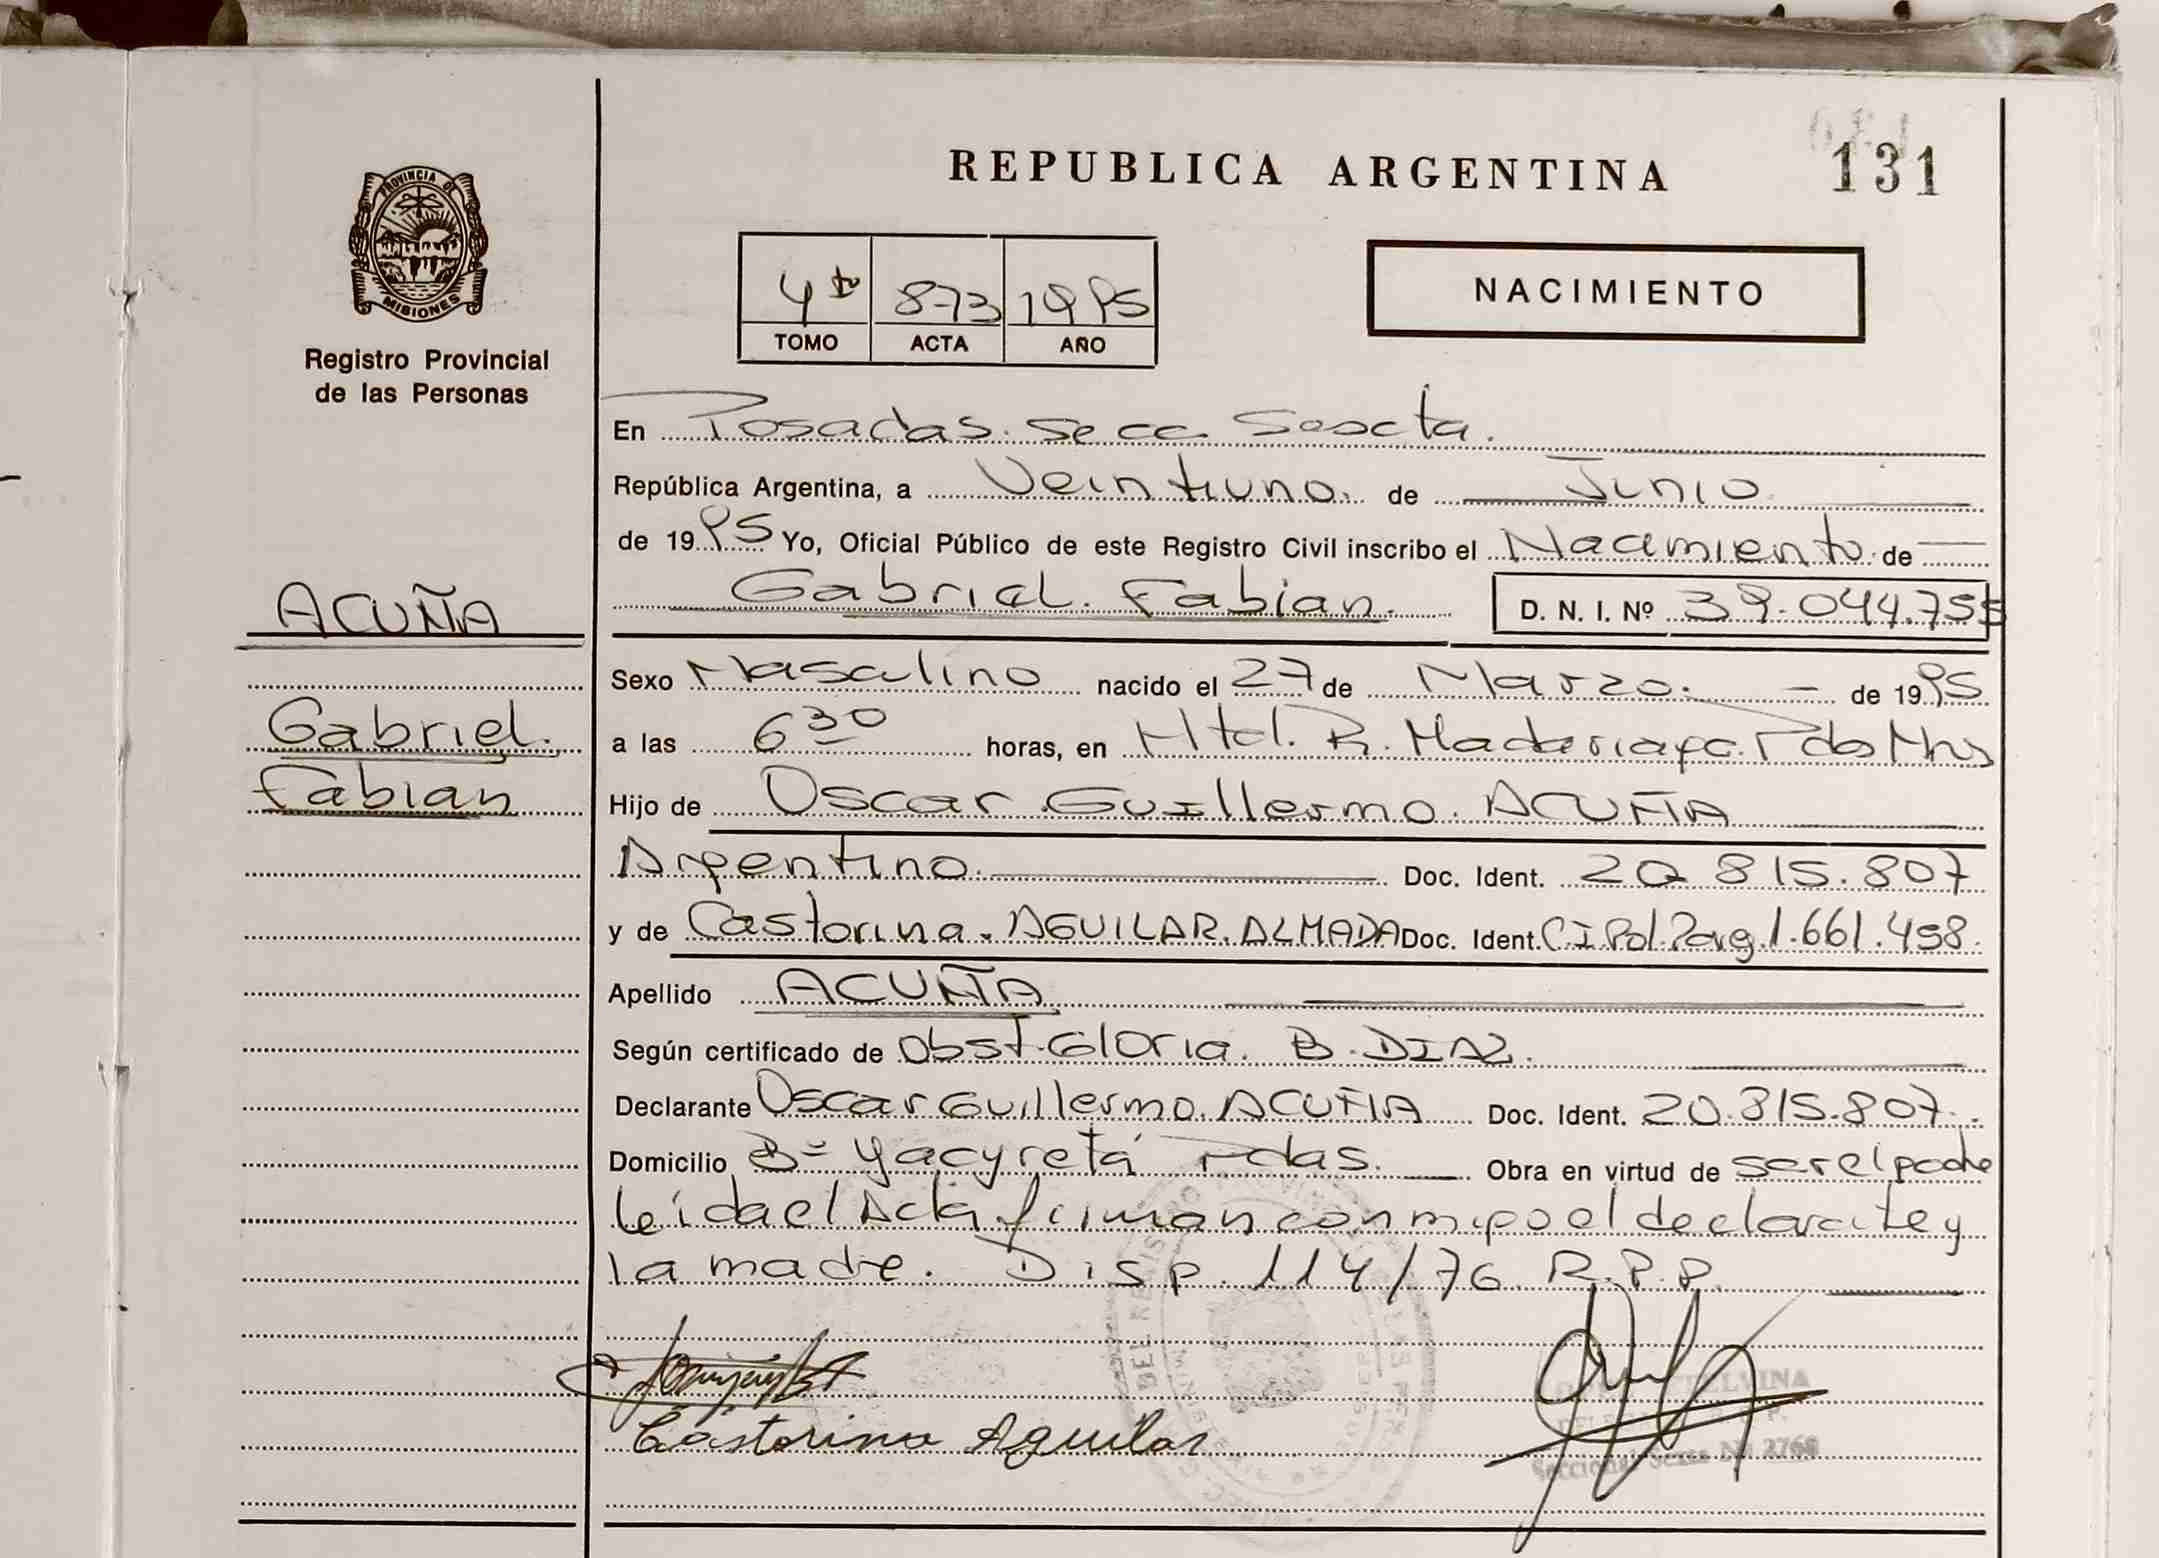 REPUBLICA ARGENTINA
131
PROVINCIA DE
MISIONES
Registro Provincial
de las Personas
4to 873 1995
TOMO ACTA AÑO
NACIMIENTO
En Posadas. Secc. Sexta.
República Argentina, a Veintiuno. de Junio
de 1995 Yo, Oficial Público de este Registro Civil inscribo el Nacimiento de
Gabriel. Fabian. D. N. I. Nº 39.044.755
ACUÑA
Gabriel.
Fabian
Sexo Masculino nacido el 27 de Marzo. de 1995
a las 6 30 horas, en Htal. R. Madariaga. Pdas Mns
Hijo de Oscar Guillermo. ACUÑA
Argentino. Doc. Ident. 20 815.807
y de Castorina. AGUILAR. ALMADA Doc. Ident. CI Pol. Parg. 1.661.458.
Apellido ACUÑA
Según certificado de Obst. Gloria. B. DIAZ.
Declarante Oscar Guillermo. ACUÑA Doc. Ident. 20.815.807.
Domicilio Bº Yacyretá Pdas. Obra en virtud de ser el padre
leída el Acta firman conmigo el declarante y
la madre. Disp. 114/76. R.P.P.
Castorina Aguilar
Seccional Sexta Nº 2768